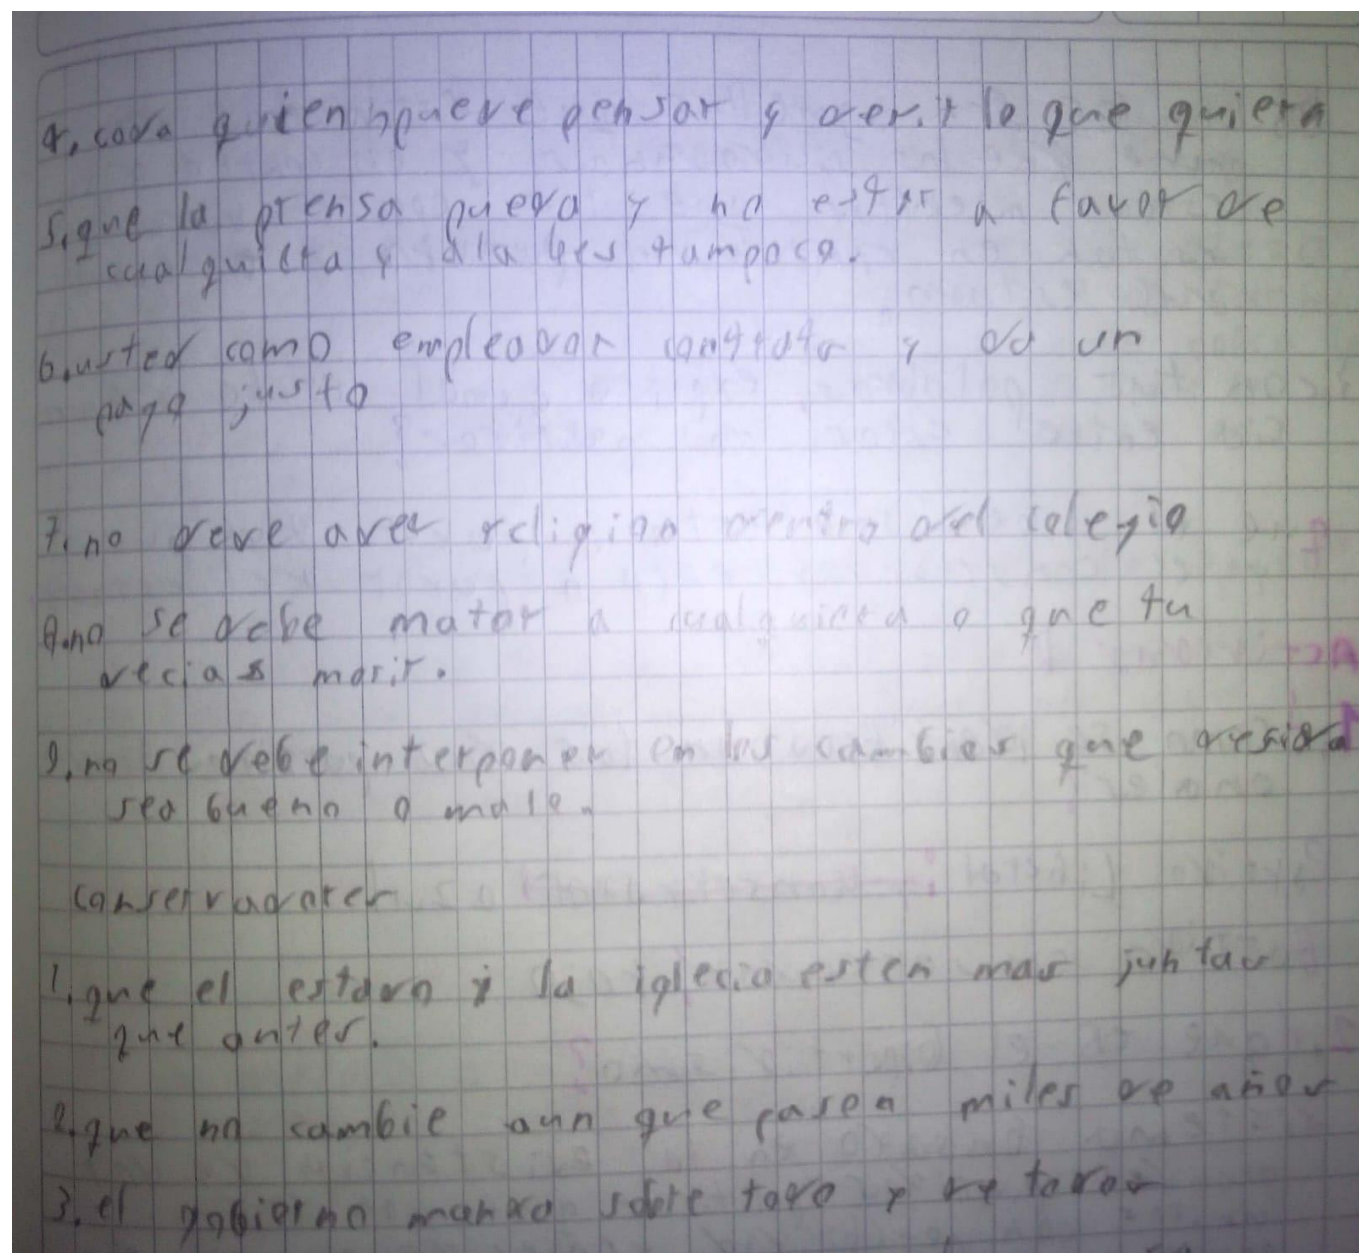 4. cada quien puede pensar y decir lo que quiera
5. que la prensa pueda y no estar a favor de
cualquiera y a la ves tampoco.
6. usted como empleador contrata y da un
pago justo
7. no deve aver religion dentro del colegio
8. no se debe matar a cualquiera o que tu
decias morir.
9. no se debe interponer en los cambios que
sea bueno o malo.
conservadores
1. que el estado y la iglecia esten mas juntas
que antes.
2. que no cambie aun que pasen miles de años
3. el gobierno manda sobre todo y todos